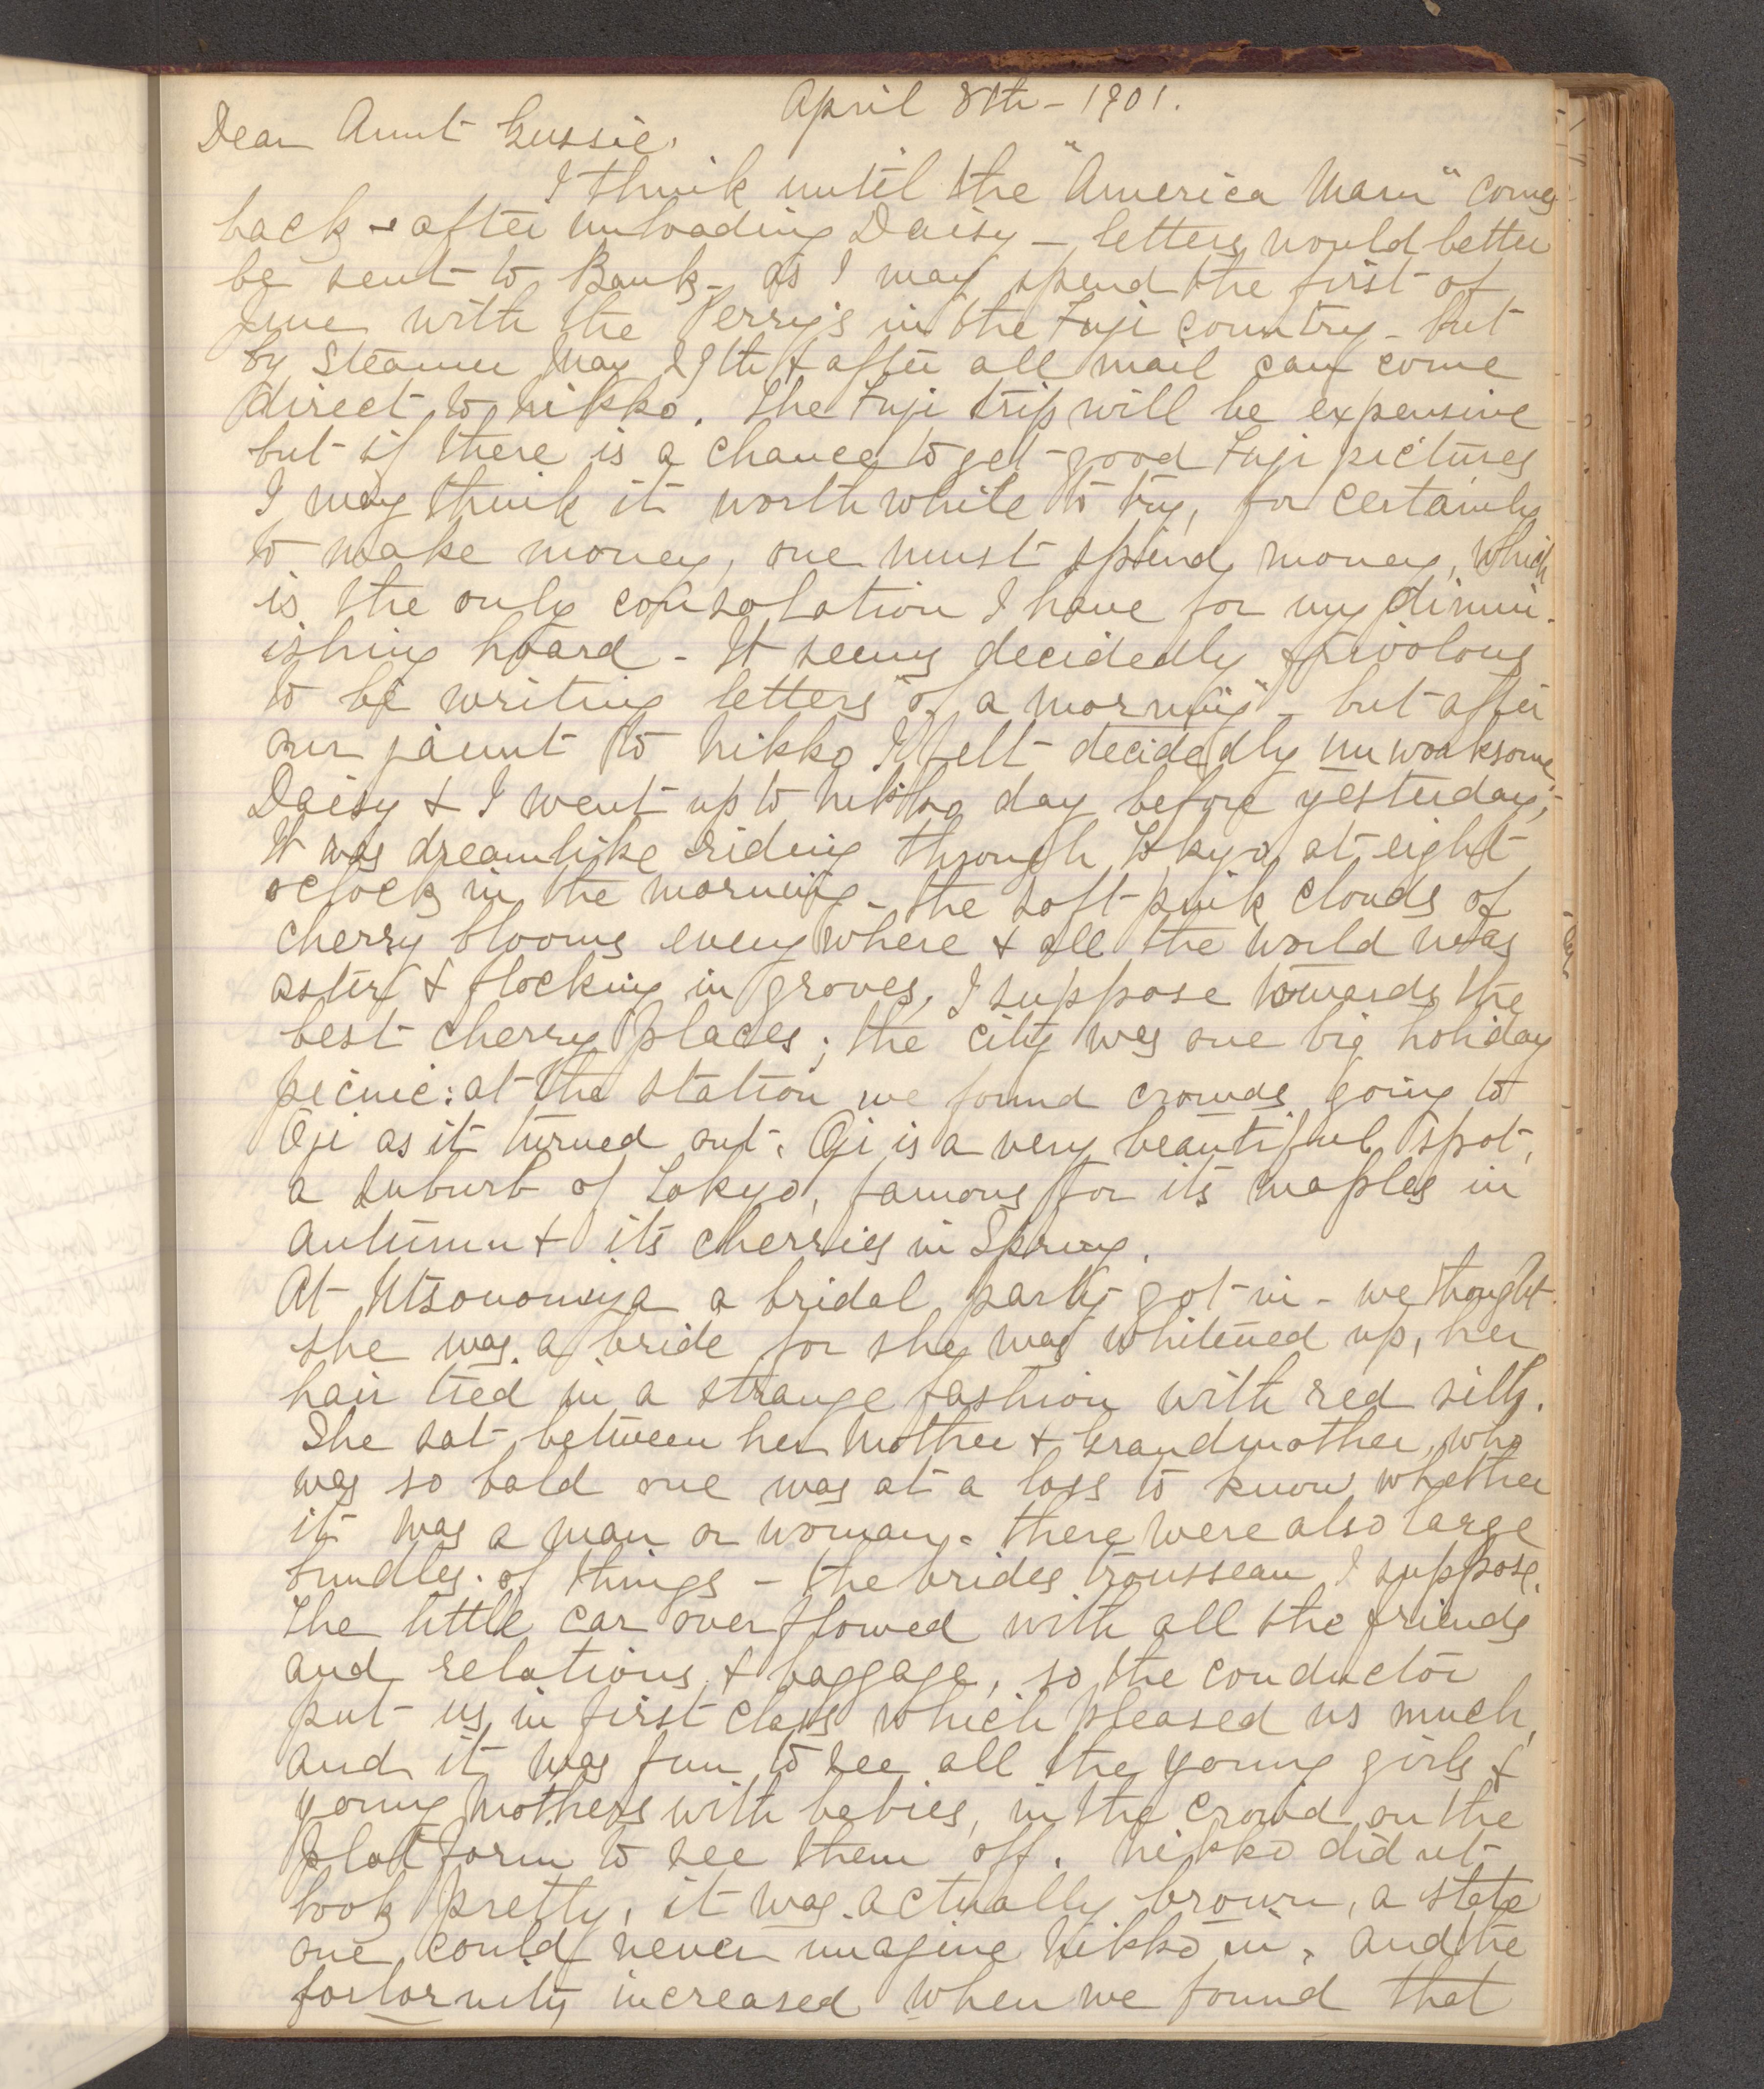 April 8th - 1901.
Dear Aunt Gussie.
I think until the "America Maru" comes
back - after unloading Daisy - letters would better
be sent to Bank - as I may spend the first of
June with the Perry's in the Fuji country - but
by Steamer May 29th & after all mail can come
direct to Nikko. The Fuji trip will be expensive
but if there is a chance to get good Fuji pictures
I may think it worth while to try, for certainly
to make money, one must spend money, which
is the only consolation I have for my dimin-
ishing hoard - It seems decidedly frivolous
to be writing letters "of a morning" - but after
our jaunt to Nikko I felt decidedly unworksome.
Daisy & I went up to Nikko day before yesterday;
It was dreamlike riding through Tokyo at eight
oclock in the morning - the soft pink clouds of
cherry blooms everywhere & all the world was
astir & flocking in groves, I suppose towards the
best cherry places; the city was one big holiday
picnic: at the station we found crowds going to
Oji as it turned out. Oji is a very beautiful spot,
a suburb of Tokyo, famous for its maples in
autumn & its cherries in Spring.
At Utsonomiya a bridal party got in - we thought
she was a bride for she was whitened up, her
hair tied in a strange fashion with red silk.
She sat between her Mother & Grandmother, who
was so bald one was at a loss to know whether
it was a man or woman. there were also large
bundles of things - the brides trousseau I suppose.
The little car overflowed with all the friends
and relations & baggage, so the conductor
put us in first class which pleased us much,
and it was fun to see all the young girls &
young mothers with babies, in the crowd on the
platform to see them off. Nikko did nt
look pretty, it was actually brown, a state
one could never imagine Nikko in. and the
forlornity increased when we found that